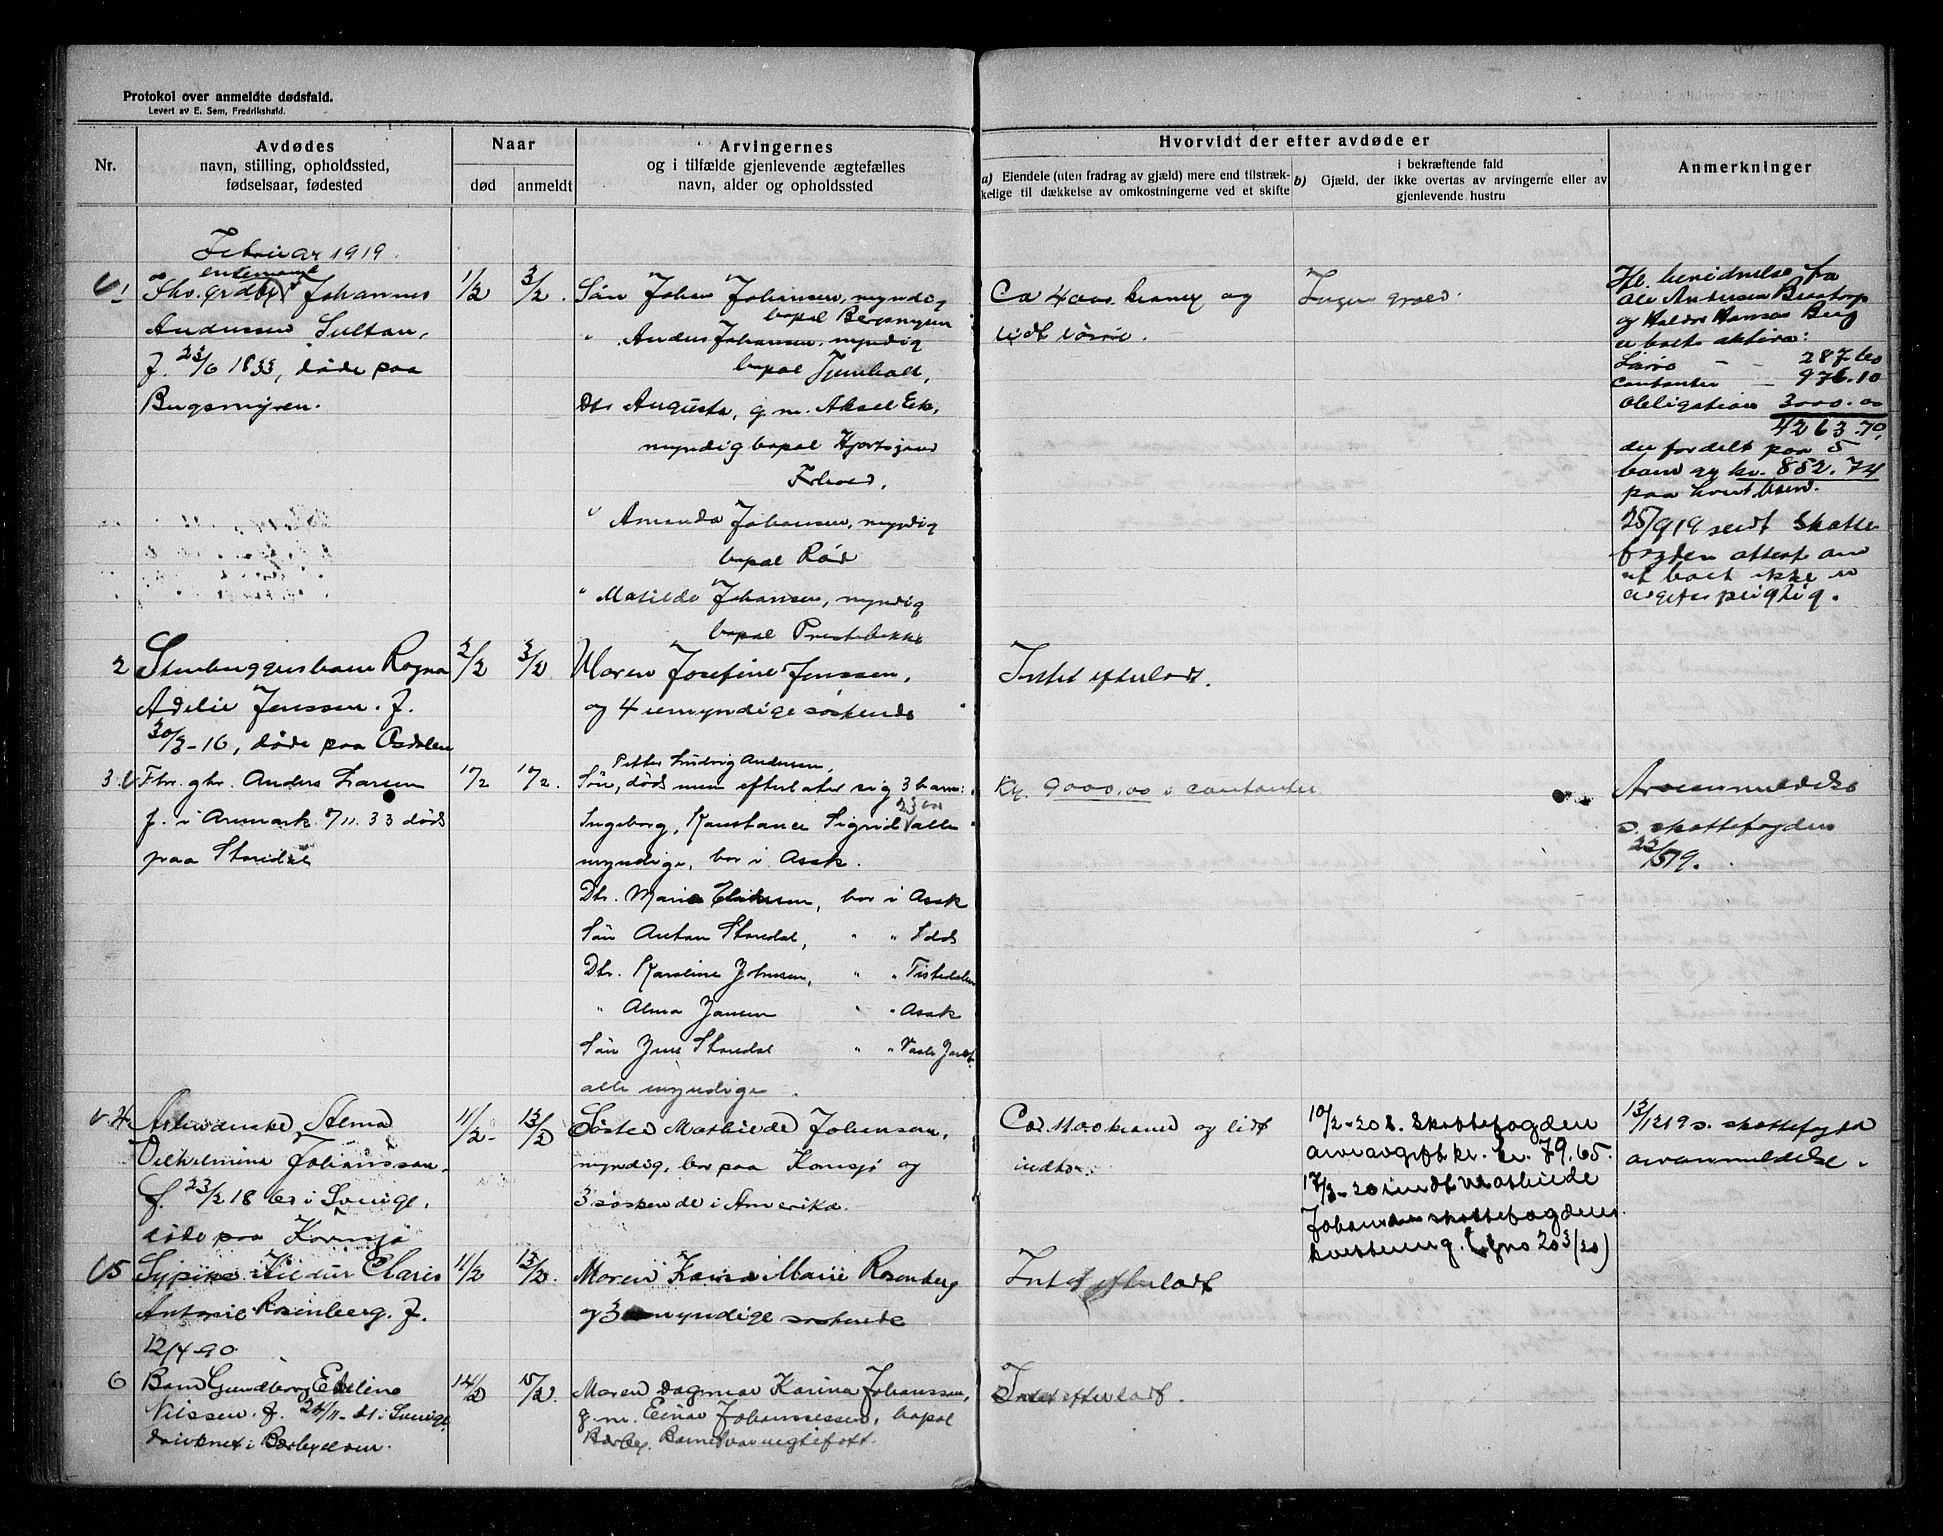 Protokol over anmeldte dødsfald.
Levert av E. Sem, Fredrikshald.
Nr.
Avdødes
navn, stilling, opholdssted,
fødselsaar, fødested
Naar
død
anmeldt
Arvingernes
og i tilfælde gjenlevende ægtefælles
navn, alder og opholdssted
Hvorvidt der efter avdøde er
a) Eiendele (uten fradrag av gjæld) mere end tilstræk-
kelige til dækkelse av omkostningerne ved et skifte
b) i bekræftende fald
Gjæld, der ikke overtas av arvingerne eller av
gjenlevende hustru
Anmerkninger
Februar 1919.
enkemand
1 Fhv. grdbr Johannes
Anderssen Sultan,
f. 23/6 1833, døde paa
1/2
3/2.
Søn Johan Johansen, myndig
bopæl Bergsmyren
" Anders Johansen, myndig
bopæl
Dtr Augusta, g. m. Aksel Eek,
myndig bopæl
" Amanda Johansen, myndig
bopæl Rød
" Matilde Johansen, myndig
bopæl Prestebakke
Ca 4000 kroner og
lidt løsøre.
Ingen gjæld.
Ifl. fra
Ole Andersen
og Hansen Berg
er boets aktiva:
Løsøre — 287.60
Contanter — 976.10
Obligation 3000.00
4263.70,
der fordelt paa 5
barn og kr. 852.74
paa hvert barn.
25/9 19 sendt Skatte
fogden attest om
at boet ikke er
avgiftspligtig.
2 Ragna
Adelie Jenssen. f.
30/3-16, døde paa Asdalen
2/2
3/2.
Moren Josefine Jenssen,
og 4 umyndige søskende
Intet efterladt.
3 Fhv. gbr. Anders Larsen
f. i Aremark 7/11.33 død
paa Storedal
17/2
17/2.
Petter Ludvig Andersen,
Søn, død men efterlater sig 3 barn:
Ingeborg, Konstance Sigrid alle
myndige, bor i Asak.
Dtr. Maria bor i Asak
Søn Anton Storedal, " " Idd
Dtr. Karoline Johnsen, " " Tistedalen
" Alma Jansen " " Asak
Søn Jens Storedal " "
alle myndige.
Kr. 9000.00 i contanter
Arveanmeldelse
s. skattefogden
22/5 19.
4. Arbeiderske Alma
Vilhelmine Johanssen.
f. 23/2 18 i Sverige,
døde paa Kornsjø
11/2
13/2
Søster Mathilde Johansen,
myndig, bor paa Kornsjø og
3 søskende i Amerika.
Ca. kroner og lidt
indbo.
10/2-20 s. Skattefogden
arveavgift kr. kr. 79.65.
17/3-20 sendt Mathilde
Johansen skattefogdens
kvittering.
13/12 19 s. skattefogden
arveanmeldelse.
5 Sypike Hildur
Antonie Rosenberg. f.
12/4-90
11/2
13/2.
Moren Marie Rosenberg
og 3 myndige søskende
Intet efterladt
6 Barn Gundborg
Nilssen. f. i Sverige,
14/2
15/2.
Moren Dagmar Karina Johanssen,
g. m. Einar Johannessen, bopæl
Barnet var uegtefødt.
Intet efterladt.